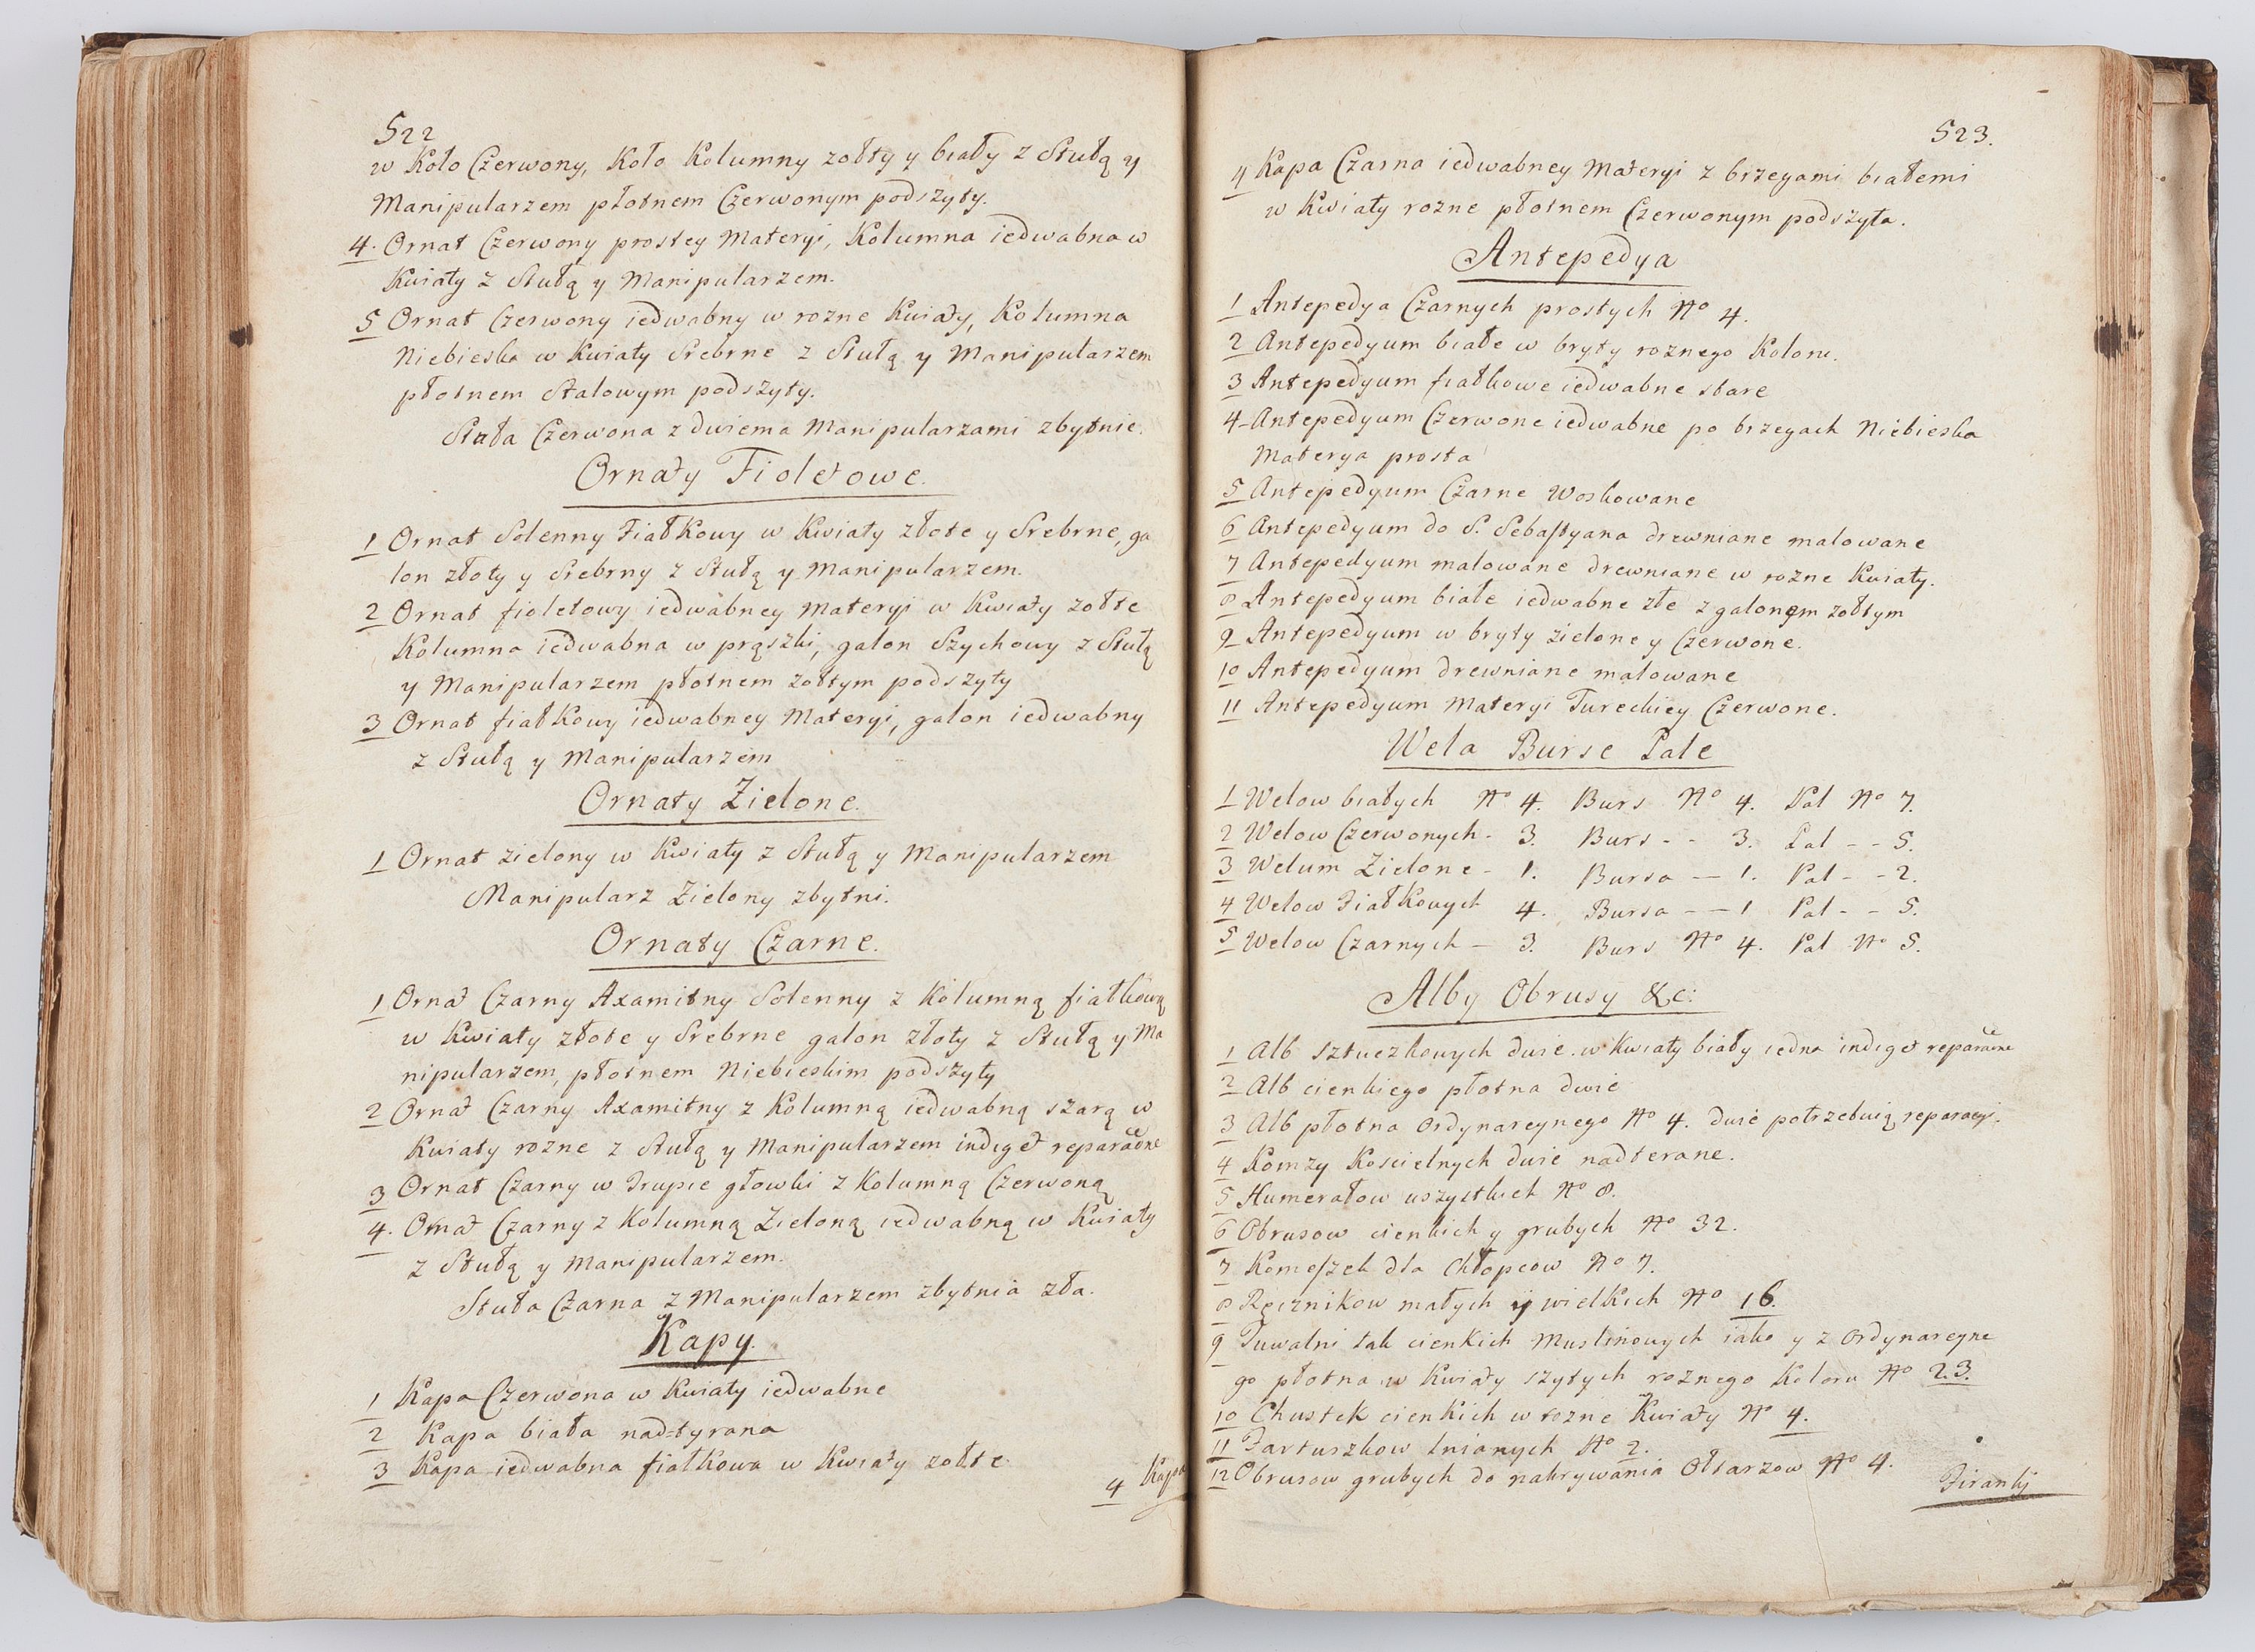 522
w Koło Czerwony, Koło Kolumny zołty y biały z Stułą y
Manipularzem płotnem Czerwonym podszyty.
4. Ornat Czerwony prostey Materyi, Kolumna iedwabna w
Kwiaty z Stułą y Manipularzem.
5 Ornat Czerwony iedwabny w rozne Kwiaty, Kolumna
Niebieska w Kwiaty Srebrne z Stułą y Manipularzem
płotnem Stalowym podszyty.
Stuła Czerwona z dwiema Manipularzami zbytnie.
Ornaty Fioletowe.
1 Ornat Solenny Fiałkowy w Kwiaty złote y Srebrne, ga
lon złoty y Srebrny z Stułą y Manipularzem.
2 Ornat fioletowy iedwabney Materyi w Kwiaty zołte
Kolumna iedwabna w prąszki, galon Szychowy z Stułą
y Manipularzem płotnem zołtym podszyty
3 Ornat fiałkowy iedwabney Materyi, galon iedwabny
z Stułą y Manipularzem
Ornaty Zielone.
1 Ornat zielony w Kwiaty z Stułą y Manipularzem
Manipularz Zielony zbytni.
Ornaty Czarne.
1 Ornat Czarny Axamitny Solenny z Kolumną fiałkową
w Kwiaty złote y Srebrne galon złoty z Stułą y Ma
nipularzem, płotnem Niebieskim podszyty
2 Ornat Czarny Axamitny z Kolumną iedwabną szarą w
Kwiaty rozne z Stułą y Manipularzem indiget reparaõne
3 Ornat Czarny w Trupie głowki z Kolumną Czerwoną
4. Ornat Czarny z Kolumną Zieloną iedwabną w Kwiaty
z Stułą y Manipularzem.
Stuła Czarna z Manipularzem zbytnia zła.
Kapy.
1 Kapa Czerwona w Kwiaty iedwabne
2 Kapa biała nad=tyrana
3 Kapa iedwabna fiałkowa w Kwiaty zołte
4 Kapa
523.
4 Kapa Czarna iedwabney Materyi z brzegami białemi
w Kwiaty rozne płotnem Czerwonym podszyta.
Antepedya
1 Antepedya Czarnych prostych No 4.
2 Antepedyum białe w bryty roznego Koloru.
3 Antepedyum fiałkowe iedwabne stare
4 Antepedyum Czerwone iedwabne po brzegach Niebieska
Materya prosta
5 Antepedyum Czarne Woskowane
6 Antepedyum do S. Sebastyana drewniane malowane
7 Antepedyum malowane drewniane w rozne Kwiaty.
8 Antepedyum białe iedwabne złe z galonem zołtym
9 Antepedyum w bryty zielone y Czerwone.
10 Antepedyum drewniane malowane
11 Antepedyum Materyi Tureckiey Czerwone.
Wela Burse Pale
1 Welow białych No 4. Burs No 4. Pal No 7.
2 Welow Czerwonych - 3. Burs - - 3. Pal - - 5.
3 Welum Zielone - 1. Bursa — 1. Pal - - 2.
4 Welow Fiałkowych 4. Bursa - — 1 Pal - - 5.
5 Welow Czarnych - 3. Burs No 4. Pal No 5.
Alby Obrusy &c:
1 Alb sztuczkowych dwie w Kwiaty biały iedna indiget reparaõne
2 Alb cienkiego płotna dwie
3 Alb płotna Ordynaryinego No 4. dwie potrzebuią reparacyi.
4 Komzy Koscielnych dwie nadterane.
5 Humerałow wszystkich No 8.
6 Obrusow cienkich y grubych No 32.
7 Komeszek dla Chłopcow No 7.
8 Ręcznikow małych y wielkich No 16.
9 Tuwalni tak cienkich Muslinowych iako y z Ordynaryine
go płotna w Kwiaty szytych roznego Koloru No 23.
10 Chustek cienkich w rozne Kwiaty No 4.
11 Fartuszkow lnianych No 2.
12 Obrusow grubych do nakrywania Ołtarzow No 4.
Firanki